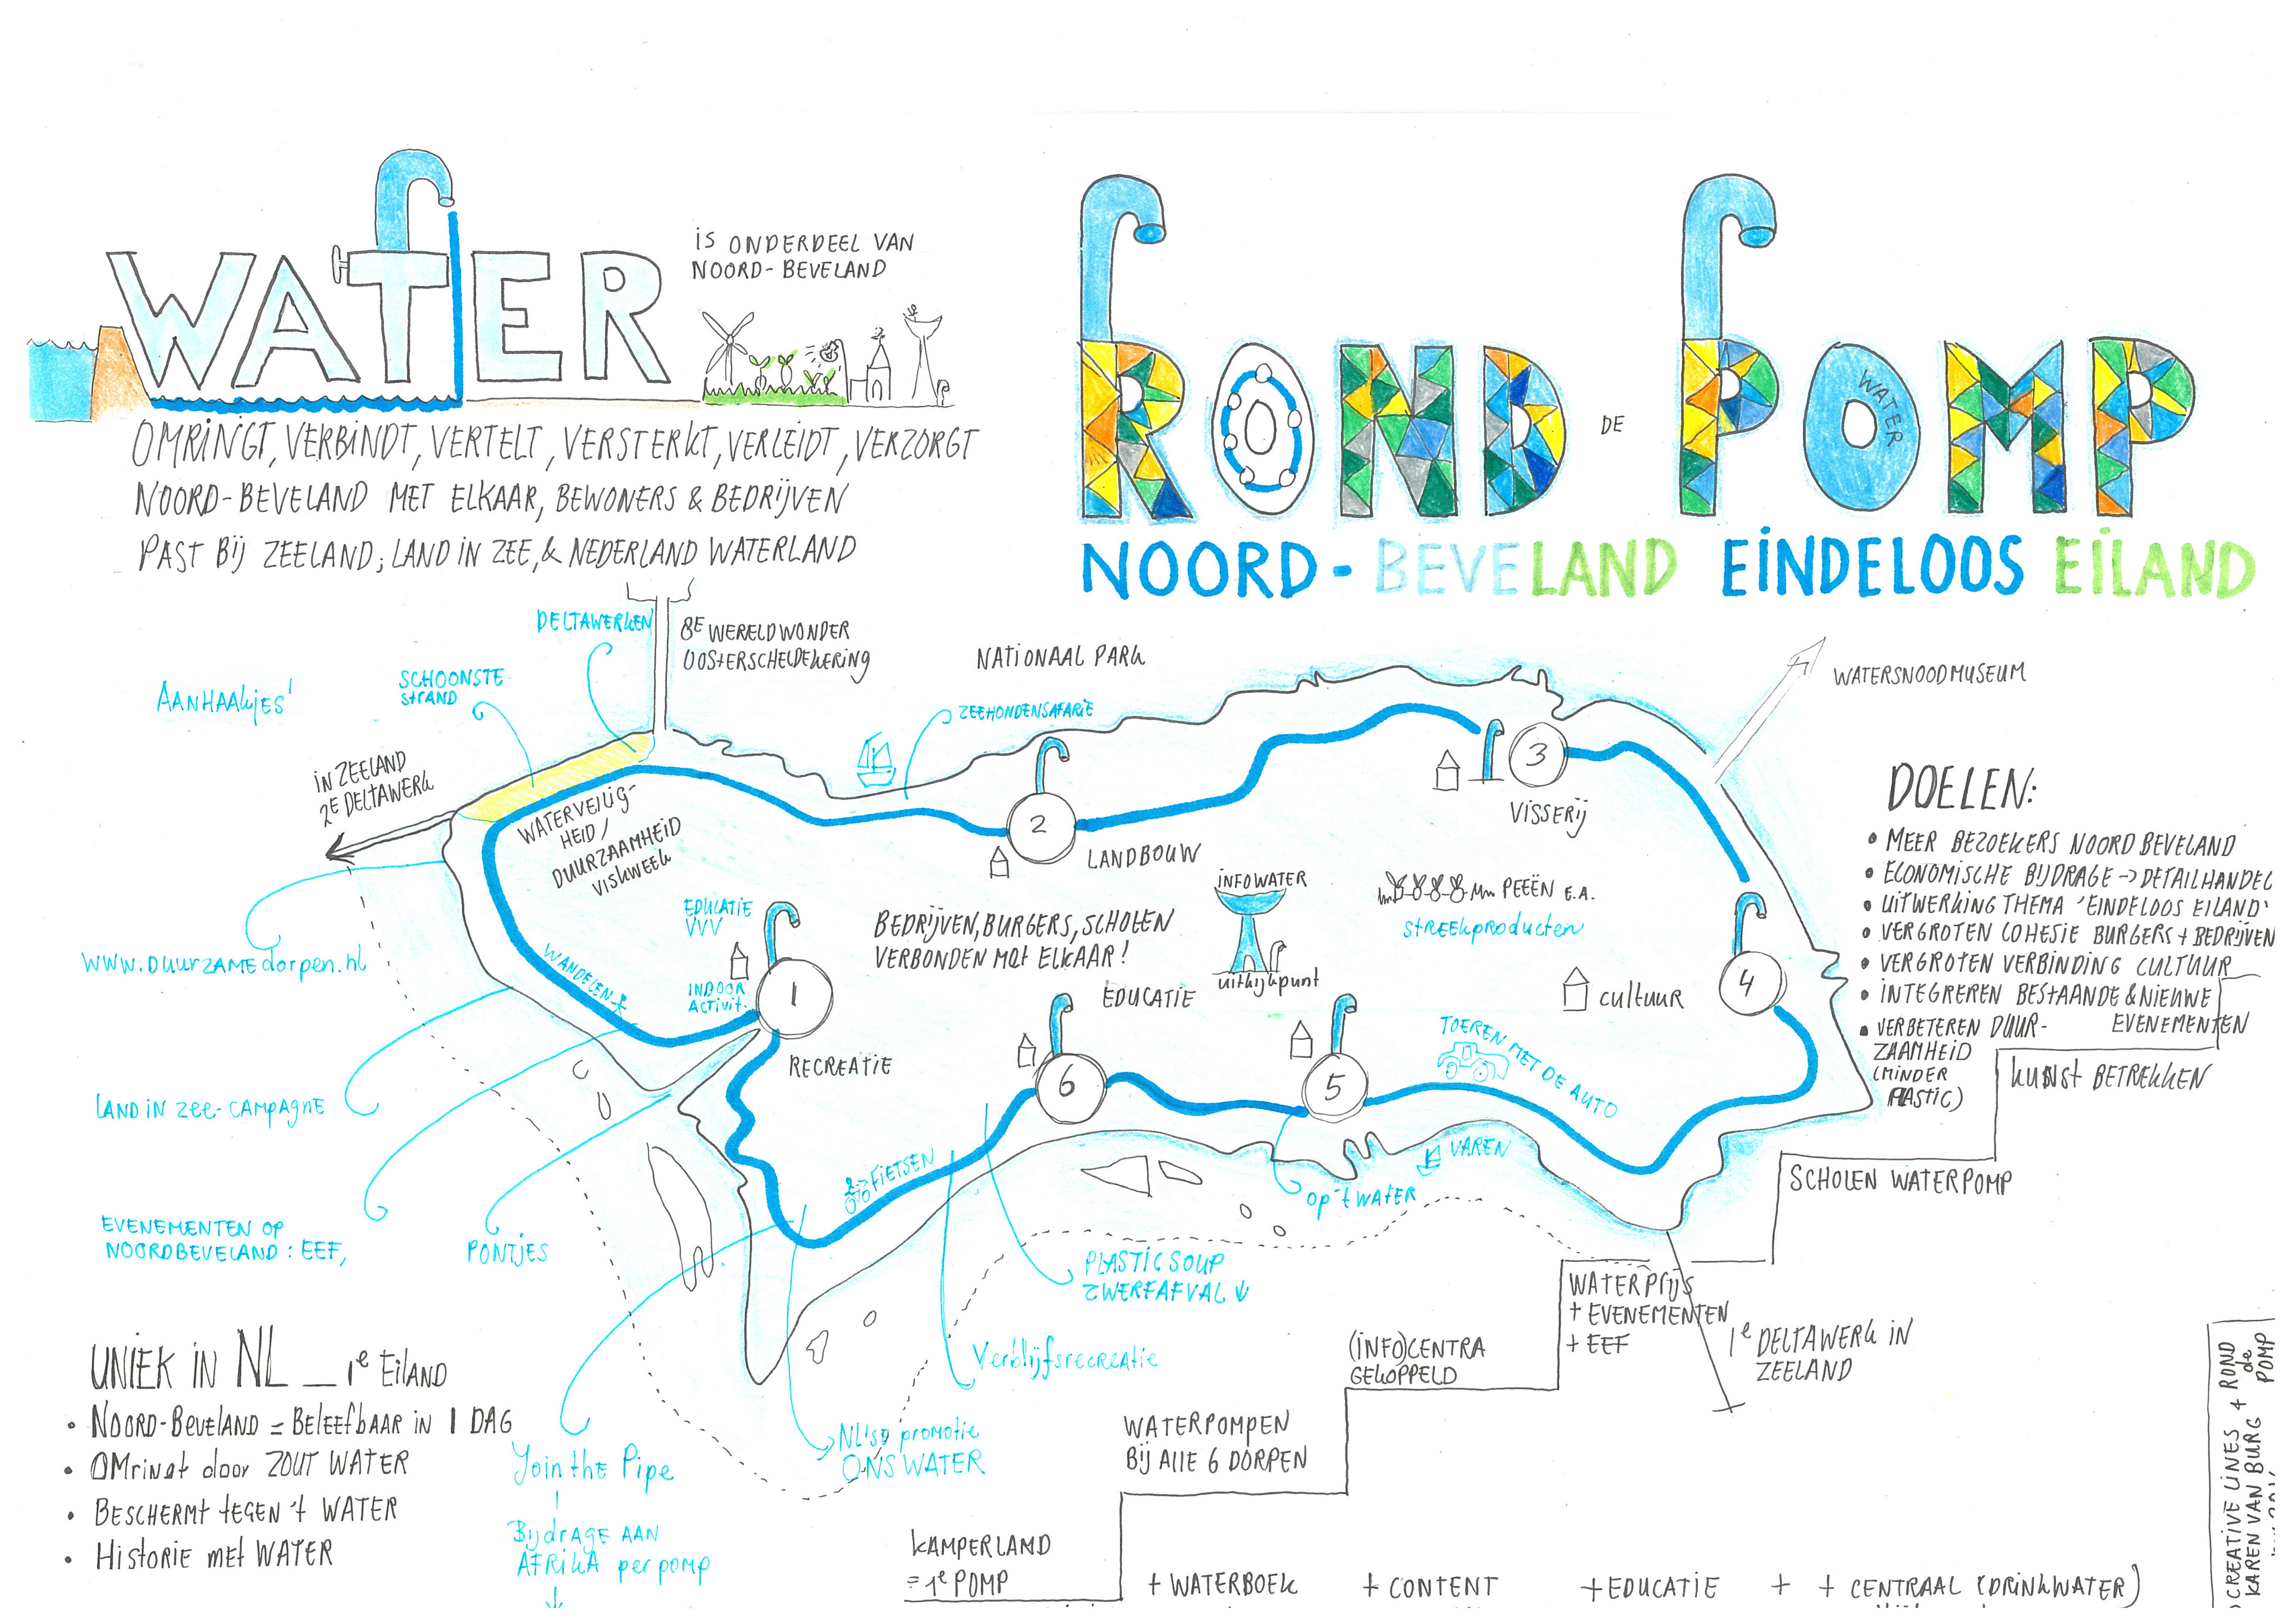 WATER
iS ONDERDEEL VAN
NOORD-BEVELAND
OMRINGT, VERBINDT, VERTELT, VERSTERKT, VERLEIDT, VERZORGT
NOORD-BEVELAND MET ELKAAR, BEWONERS & BEDRIJVEN
PAST BIJ ZEELAND; LAND IN ZEE, & NEDERLAND WATERLAND
ROND DE POMP
WATER
NOORD-BEVELAND EINDELOOS EILAND
DELTAWERKEN
8E WERELDWONDER
OOSTERSCHELDEKERING
NATIONAAL PARK
WATERSNOODMUSEUM
AANHAAKJES'
SCHOONSTE
STRAND
ZEEHONDENSAFARIE
IN ZEELAND
2E DELTAWERK
WATERVEILIG-
HEID /
DUURZAAMHEID
VISKWEEK
2
LANDBOUW
3
VISSERIJ
INFOWATER
uitkijkpunt
PEEËN E.A.
STREEKPRODUCTEN
EDUCATIE
VVV
INDOOR
ACTIVIT.
1
RECREATIE
BEDRIJVEN, BURGERS, SCHOLEN
VERBONDEN MET ELKAAR!
EDUCATIE
CULTUUR
4
WANDELEN
6
5
TOEREN MET DE AUTO
FIETSEN
VAREN
OP 'T WATER
www.DUURZAMEdorpen.nl
LAND IN ZEE-CAMPAGNE
EVENEMENTEN OP
NOORDBEVELAND: EEF,
PONTJES
PLASTIC SOUP
ZWERFAFVAL ↓
Verblijfsrecreatie
NL'se promotie
ONS WATER
Join the Pipe
BijdrAGE AAN
AFRIKA per pomp
↓
DOELEN:
• MEER BEZOEKERS NOORD BEVELAND
• ECONOMISCHE BIJDRAGE → DETAILHANDEL
• UITWERKING THEMA 'EINDELOOS EILAND'
• VERGROTEN COHESIE BURGERS + BEDRIJVEN
• VERGROTEN VERBINDING CULTUUR
• INTEGREREN BESTAANDE & NIEUWE
EVENEMENTEN
• VERBETEREN DUUR-
ZAAMHEID
(MINDER
PLASTIC)
KUNST BETREKKEN
SCHOLEN WATERPOMP
WATERPRIJS
+ EVENEMENTEN
+ EEF
1e DELTAWERK IN
ZEELAND
(INFO)CENTRA
GEKOPPELD
WATERPOMPEN
BIJ ALLE 6 DORPEN
KAMPERLAND
= 1e POMP
UNIEK IN NL _ 1e EILAND
• NOORD-BEVELAND = BELEEFBAAR IN 1 DAG
• OMringt door ZOUT WATER
• BESCHERMT TEGEN 't WATER
• HISTORIE MET WATER
+ WATERBOEK + CONTENT + EDUCATIE + + CENTRAAL (DRINKWATER)
CREATIVE LINES 4 ROND
de
POMP
KAREN VAN BURG